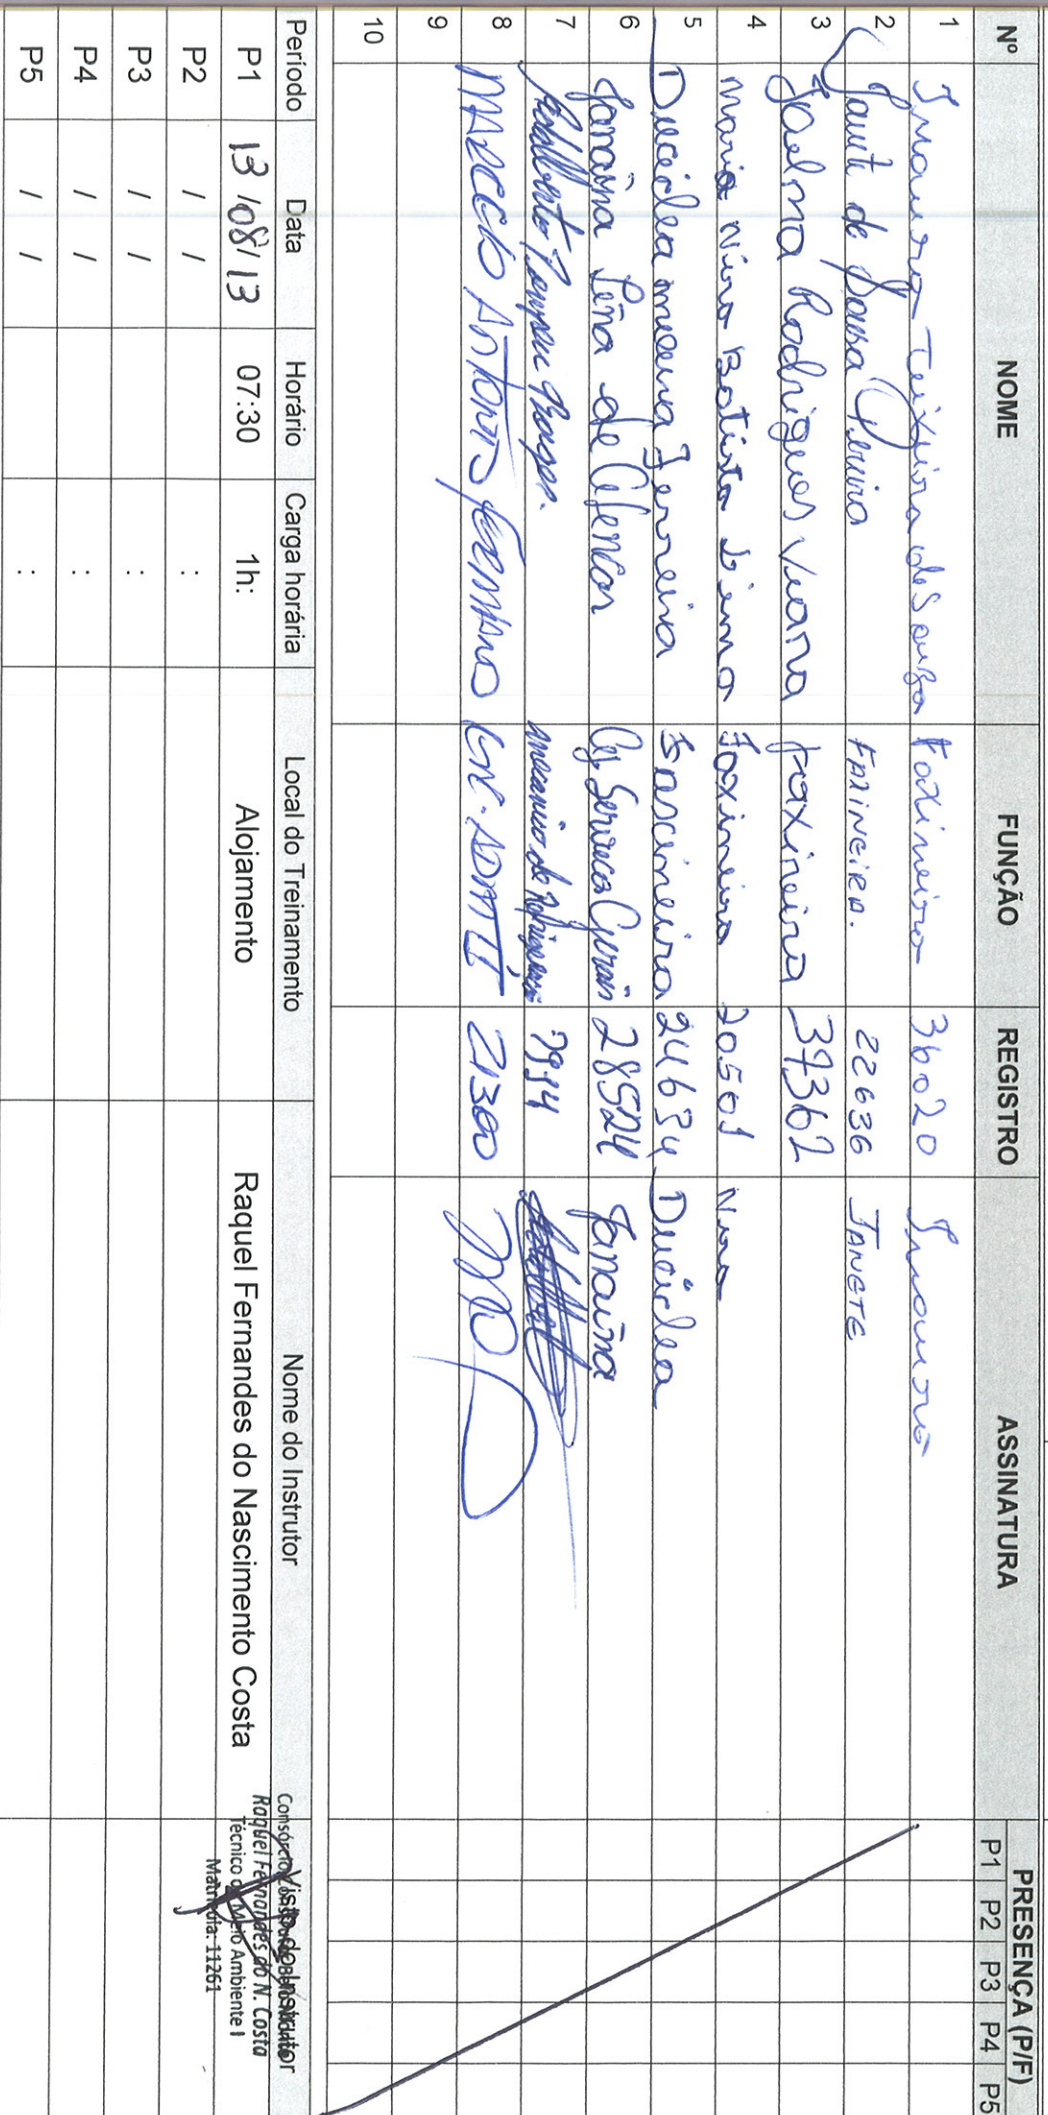 Nº NOME FUNÇÃO REGISTRO ASSINATURA PRESENÇA (P/F)
P1 P2 P3 P4 P5
1 Teixeira de Souza Faxineira 36020
2 Janete de Sousa Pereira FAXINEIRA. 22636 JANETE
3 Joelma Rodrigues Viana faxineira 37362
4 Maria Nira Batista Lima Faxineira 20501 Nira
5 Dulcicléa Ferreira Faxcineira 24634 Dulcicléa
6 Janaína Lima de Alencar Aj. Servicos Gerais 28524 Janaína
7 mecanico de Refrigeração 7914
8 MARCELO ANTONIO GERMANO 21300
9
10
Período Data Horário Carga horária Local do Treinamento Nome do Instrutor Visto do Instrutor
P1 13/08/13 07:30 1h: Alojamento Raquel Fernandes do Nascimento Costa
Raquel Fernandes do N. Costa
Técnico de Meio Ambiente I
Matrícula: 11261
P2 / / :
P3 / / :
P4 / / :
P5 / / :